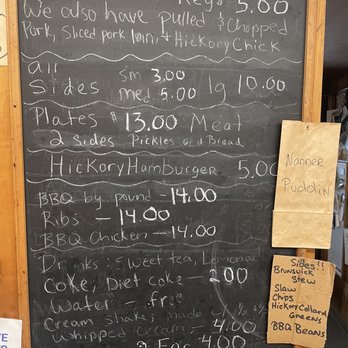 Reg 5.00
We also have pulled & chopped
Pork, Sliced pork loin, + Hickory Chick
all
Sides Sm 3.00 med 5.00 lg 10.00
Plates $13.00 Meat
2 sides Pickles and Bread
Hickory Hamburger 5.00
BBQ by pound - 14.00
Ribs - 14.00
BBQ Chicken - 14.00
Drinks: Sweet tea, Lemonade
Coke, Diet coke - 2.00
Water - free
Cream Shakes, made w/ 1/2 & 1/2
Whipped cream - 4.00
2 For 4.00
Nanner
Puddin
Sides!!
Brunswick
Stew
Slaw
Chips
Hickory Collard
Greens
BBQ Beans